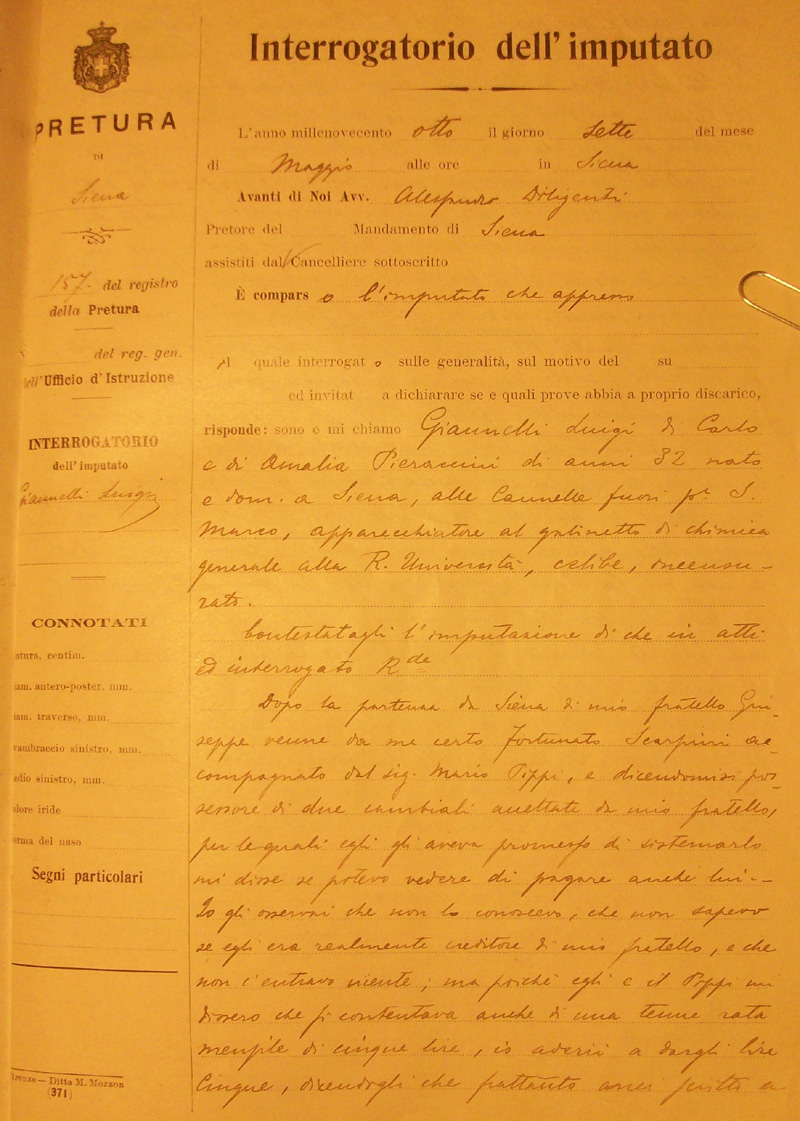 PRETURA
DI
Siena
157. del registro
della Pretura
del reg. gen.
dell'Ufficio d'Istruzione
INTERROGATORIO
dell'imputato
Giannelli Luigi
CONNOTATI
statura, centim.
diam. antero-poster. mm.
diam. traverso, mm.
avambraccio sinistro, mm.
medio sinistro, mm.
colore iride
forma del naso
Segni particolari
Firenze — Ditta M. Mozzon
(371)
Interrogatorio dell'imputato
L'anno millenovecento otto il giorno sette del mese
di Maggio alle ore in Siena
Avanti di Noi Avv. Alessandro Diligenti
Pretore del Mandamento di Siena
assistiti dal Cancelliere sottoscritto
È compars o l'imputato che appresso
Al quale interrogat o sulle generalità, sul motivo del su
ed invitat a dichiarare se e quali prove abbia a proprio discarico,
risponde: sono e mi chiamo Giannelli Luigi di Carlo
e di Amalia Pieraccini di anni 32 nato
e dom. a Siena, alle Cannelle fuori pta S.
Marco, apparecchiatore al gabinetto di chimica
generale alla R. Università, celibe, incensu-
rato.
Contestatagli l'imputazione di che in atti
ed interrogato Rde
Dopo la partenza da Siena di mio fratello Giu-
seppe venne da me certo Fortunato Scarpini ac-
compagnato dal sig. Mario Pippi, e dicendomisi pos-
sessore di due cambiali accettate da mio fratello,
per le quali egli gli aveva promesso di sistemarlo
mi disse se potevo vedere di pagare anche lui --
Io gli osservai che non lo conoscevo, che non sapevo
se egli era realmente creditore di mio fratello, e che
non c'entravo niente; ma poichè egli e il Pippi mi
dissero che si contentava anche di una tenue rata
mensile di cinque lire, io aderii a dargli lire
cinque, dicendogli che frattanto avrei scritto a